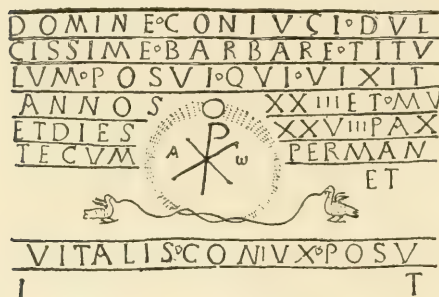 DOMINE◦CONIVGI◦DVL
CISSIME◦BARBARE◦TITV
LVM◦POSVI◦QVI◦VIXIT
ANNOS XXIIII ET◦MV
ETDIES XXVIII PAX
TECVM PERMAN
ET
A ω
VITALIS◦CONIVX◦POSV
I T